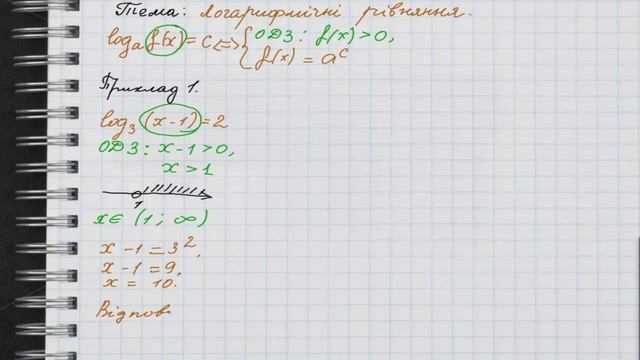 Тема: логарифмічні рівняння.
log_a f(x) = c <=> { ОДЗ: f(x) > 0,
f(x) = a^c
Приклад 1.
log_3 (x-1) = 2
ОДЗ: x-1>0,
x>1
1
x∈ (1; ∞)
x-1=3^2,
x-1=9,
x = 10.
Відпов